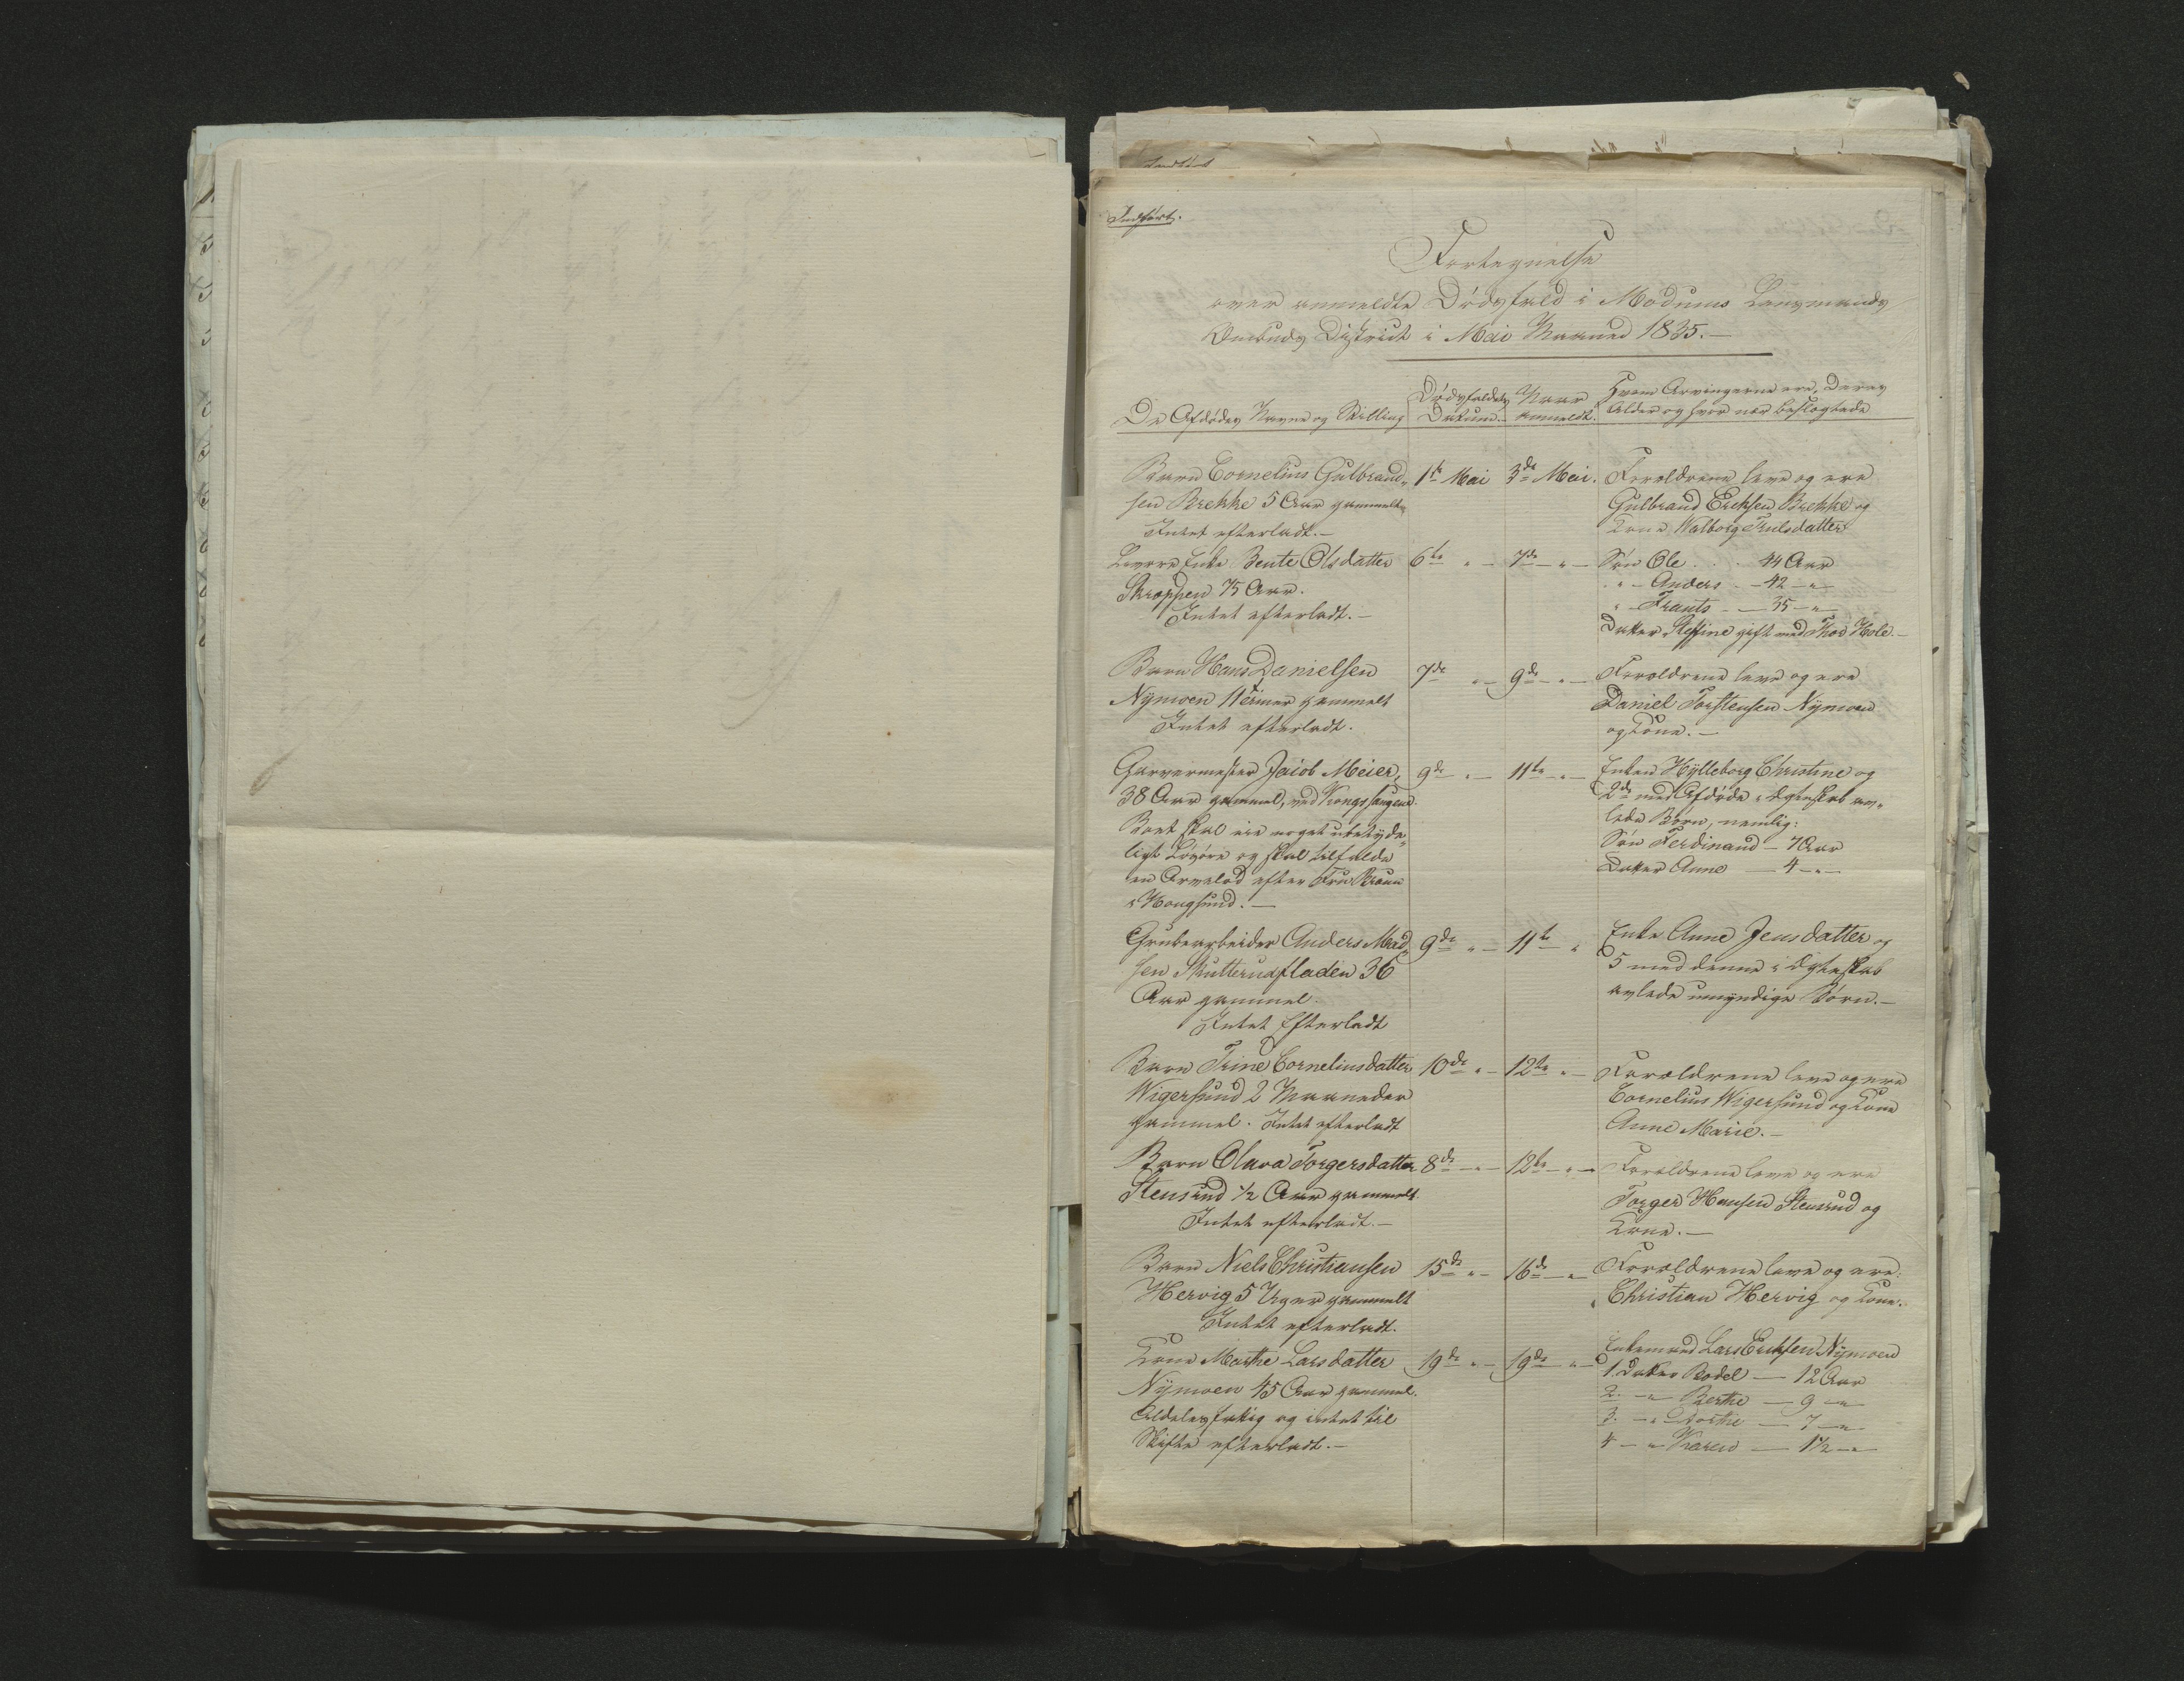 Indført.
Fortegnelse
over anmeldte Dødsfald i Modums Lensmands
Ombuds District i Mai Maaned 1835.—
De Afdødes Navne og Stilling
Dødsfaldets Datum.
Naar anmeldt.
Hvem Arvingerne ere, Deres
Alder og hvor nær beslægtede
Barn Cornelius Gulbrand-
sen Brekke 5 Aar gammelt
Intet efterladt.—
1te Mai
3de Mai.
Forældrene leve og ere
Gulbrand Ericksen Brekke og
Kone Walborg Trulsdatter
Enke Bente Olsdatter
Skroppen 75 Aar.
Intet efterladt.—
6te " —
7de — " —
Søn Ole . . . 44 Aar
" — Anders — 42 — "
" — Frants — 35 — "
Datter Steffine gift med Thor Hole.—
Barn Hans Danielsen
Nymoen gammelt
Intet efterladt.
7de " —
9de — " —
Forældrene leve og ere
Daniel Torstensen Nymoen
og Kone.—
Garvermester Jacob Meier,
38 Aar gammel, ved Kongssaugene.
Boet skal eie noget ubetyde-
ligt Løsøre og skal tilfalde
en Arvelod efter Fru Braun
i Hougsund.—
9de " —
11te — " —
Enken Hylleborg Christine og
2de med Afdøde i Ægteskab av-
lede Børn, nemlig:
Søn Ferdinand — 7 Aar
Datter Anne — 4 — " —
Grubearbeider Anders Mad-
sen Skutterudfladen 36
Aar gammel.
Intet Efterladt
9de " —
11te — "
Enke Anne Jensdatter og
5 med denne i Ægteskab
avlede umyndige Børn.—
Barn Trine Corneliusdatter
Wigersund 2 Maaneder
gammel. Intet efterladt
10de " —
12te " —
Forældrene leve og ere
Cornelius Wigersund og Kone
Anne Marie.—
Barn Olava Torgersdatter
Stensrud 1/2 Aar gammelt.
Intet efterladt.—
8de — " —
12te — " —
Forældrene leve og ere
Torger Hansen Stensrud og
Kone.—
Barn Niels Christiansen
Hervig 5 Uger gammelt
Intet efterladt.
15de " —
16de — " —
Forældrene leve og ere:
Christian Hervig og Kone.
Kone Marthe Larsdatter
Nymoen 45 Aar gammel.
Aldeles fattig og intet til
Skifte efterladt.—
19de " —
19de " —
Enkemand Lars Ericksen Nymoen
1. Datter Bodel — 12 Aar
2. — " Berthe — 9 — "
3. — " Dorthe — 7 — "
4 — " Karen — 1 1/2 — "